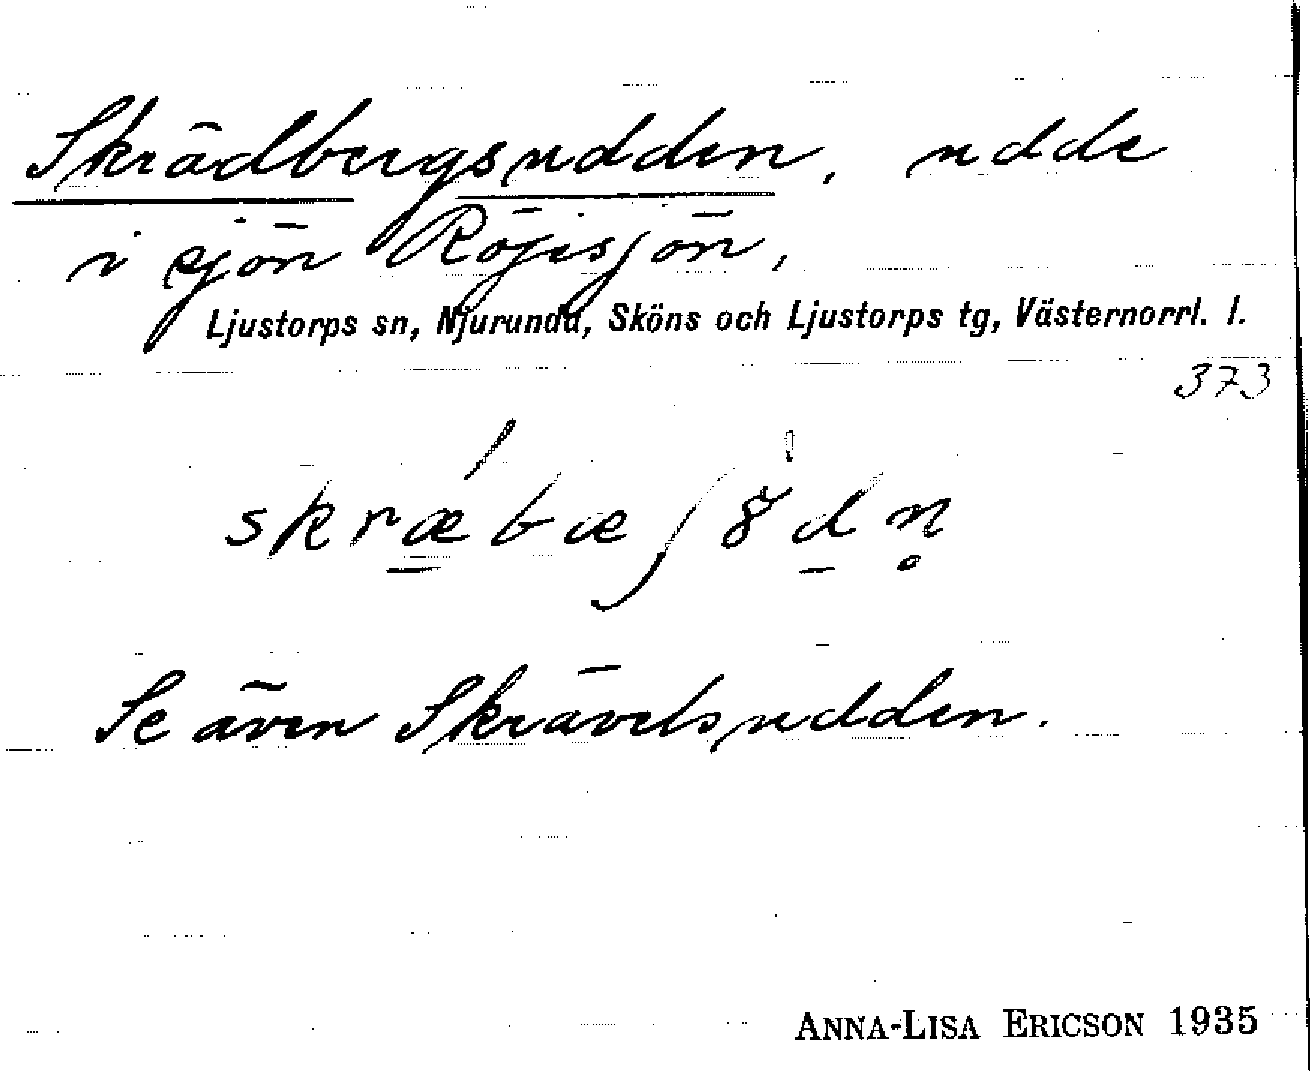 Skrädbergsudden, udde
i sjön Röjesjön,
Ljustorps sn, Njurunda, Sköns och Ljustorps tg, Västernorrl. l.
373
skrǽ̳bæʃ8̆dn̥
Se även Skrävelsudden.
ANNA-LISA ERICSON 1935